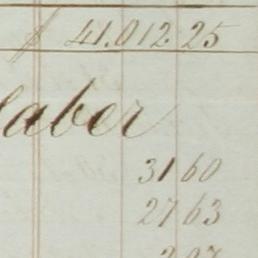 $ 41.012.25
Haber
31 60
27 63
2 07